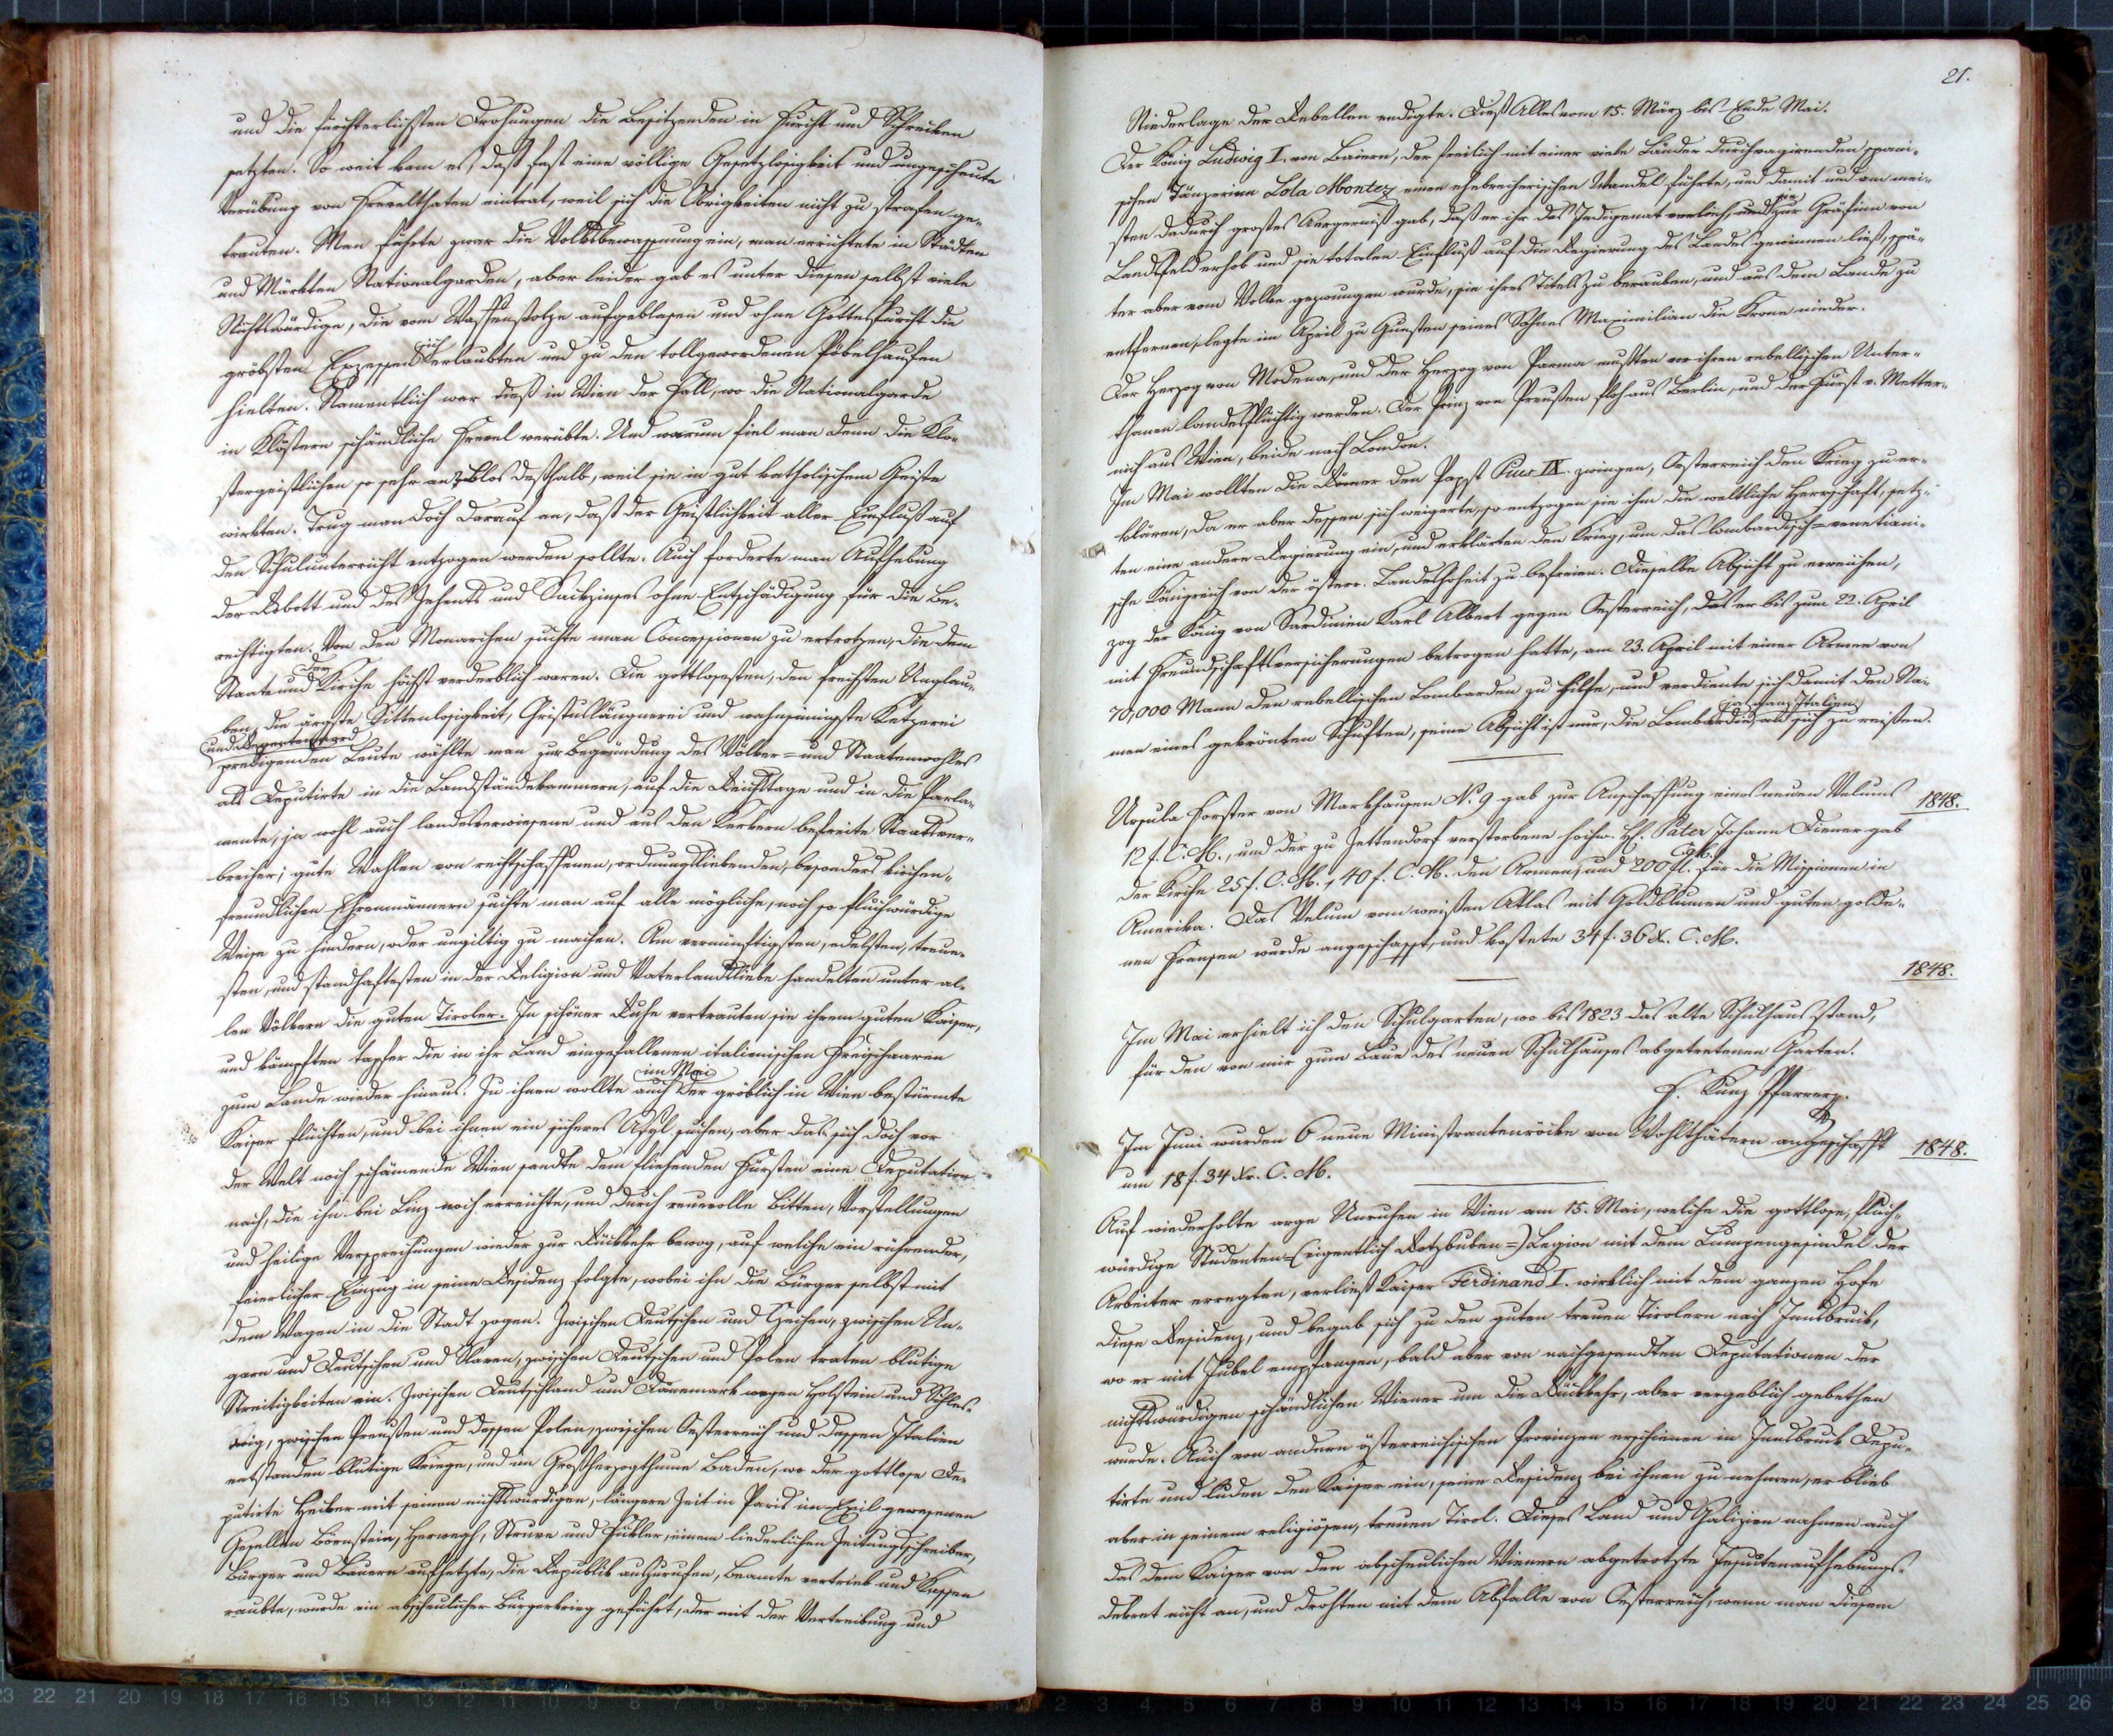 und die fürchterlichsten Drohungen die Besitzenden in Furcht und Schrecken
setzten. So weit kam es, daß fast eine völlige Gesetzlosigkeit und ungescheute
Verübung von Frevelthaten eintrat, weil sich die Obrigkeiten nicht zu strafen ge-
trauten. Man führte zwar die Volksbewaffnung ein, man errichtete in Städten
und Märkten Nationalgarden, aber leider gab es unter diesen selbst viele
Nichtswürdige, die vom Waffenstolze aufgeblasen und ohne Gottesfurcht die
gröbsten Exzessen sich erlaubten und zu den tollgewordenen Pöbelhaufen
hielten. Namentlich war dieß in Wien der Fall, wo die Nationalgarde
in Klöstern schändliche Frevel verübte. Und warum fiel man denn die Klo-
stergeistlichen so sehr an? blos deßhalb, weil sie in gut katholischem Geiste
wirkten. Trug man doch darauf an, daß der Geistlichkeit aller Einfluß auf
den Schulunterricht entzogen werden sollte. Auch forderte man Aufhebung
der Robott und des Zehents und Sackzinses ohne Entschädigung für die Be-
rechtigten. Von den Monarchen suchte man Concessionen zu ertrotzen, die dem
Staate und der Kirche höchst verderblich waren. Die gottlosesten, den frechsten Unglau-
ben, die ärgste Sittenlosigkeit, Christusläugnerei und wahnsinnigste Ketzerei
und Regentenmord
predigenden Leute wählte man zur Begründung des Völker- und Staatenwohles
als Deputirte in die Landständekammern, auf die Reichstage und in die Parla-
mente, ja wohl auch landesverwiesene und aus den Kerkern befreite Staatsver-
brecher; gute Wahlen von rechtschaffenen, ordnungsliebenden, besonders kirchen-
freundlichen Ehrenmännern suchte man auf alle mögliche, noch so fluchwürdige
Weise zu hindern, oder ungiltig zu machen. Am vernünftigsten, edelsten, treue-
sten, und standhaftesten in der Religion und Vaterlandsliebe handelten unter al-
len Völkern die guten Tiroler. In schöner Ruhe vertrauten sie ihrem guten Kaiser,
und kämpften tapfer die in ihr Land eingefallenen italienischen Freischaaren
zum Lande wieder hinaus. Zu ihnen wollte auch im Mai der gröblich in Wien bestürmte
Kaiser flüchten, und bei ihnen ein sicheres Asyl suchen, aber das sich doch vor
der Welt noch schämende Wien sandte dem fliehenden Fürsten eine Deputation
nach, die ihn bei Linz noch erreichte, und durch reuevolle Bitten, Vorstellungen
und heilige Versprechungen wieder zur Rückkehr bewog, auf welche ein rührender,
feierlicher Einzug in seine Residenz folgte, wobei ihn die Bürger selbst mit
dem Wagen in die Stadt zogen. Zwischen Deutschen und Czechen, zwischen Un-
garn und Deutschen und Slaven, zwischen Deutschen und Polen traten blutige
Streitigkeiten ein. Zwischen Deutschland und Dänemark wegen Holstein und Schles-
wig, zwischen Preußen und dessen Polen, zwischen Oesterreich und dessen Italien
entstanden blutige Kriege, und im Großherzogthume Baden, wo der gottlose De-
putirte Hecker mit seinen nichtswürdigen, längere Zeit in Paris im Exil gewesenen
Gesellen Börnstein, Herwegh, Struve und Fickler, einem liederlichen Zeitungsschreiber,
Bürger und Bauern aufhetzte, die Republik auszurufen, Beamte vertrieb und Kassen
raubte, wurde ein abscheulicher Bürgerkrieg geführt, der mit der Vertreibung und
21.
Niederlage der Rebellen endigte. Dieß Alles vom 15. März bis Ende Mai.
Der König Ludwig I. von Baiern, der freilich mit einer viele Länder durchvagirenden spani-
schen Tänzerinn Lola Montez einen ehebrecherischen Wandel führte, und damit und am mei-
sten dadurch großes Aergerniß gab, daß er ihr das Indigenat verlieh, und sie zur Gräfinn von
Landsfeld erhob und sie totalen Einfluß auf die Regierung des Landes gewinnen ließ, spä-
ter aber vom Volke gezwungen wurde, sie ihres Titels zu berauben, und aus dem Lande zu
entfernen, legte im April zu Gunsten seines Sohnes Maximilian die Krone nieder.
Der Herzog von Modena, und der Herzog von Parma mußten vor ihren rebellischen Unter-
thanen landesflüchtig werden. Der Prinz von Preußen floh aus Berlin, und der Fürst v. Metter-
nich aus Wien, beide nach London.
Im Mai wollten die Römer den Papst Pius IX. zwingen, Oesterreich den Krieg zu er-
klären, da er aber dessen sich weigerte, so entzogen sie ihm die weltliche Herrschaft, setz-
ten eine andere Regierung ein, und erklärten den Krieg, um das lombardisch-venetiani-
sche Königreich von der österr. Landeshoheit zu befreien. Dieselbe Absicht zu erreichen,
zog der König von Sardinien Karl Albert gegen Oesterreich, das er bis zum 22. April
mit Freundschaftsversicherungen betrogen hatte, am 23. April mit einer Armee von
70,000 Mann den rebellischen Lombarden zu Hilfe, und verdiente sich damit den Na-
men eines gekrönten Schuften; seine Absicht ist nur, die Lombardei ja ganz Italien an sich zu reißen.
Ursula Forster von Markhausen No. 9 gab zur Anschaffung eines neuen Velums 1848.
12 f. C. M., und der zu Zettendorf verstorbene hochw. H. Pater Johann Diener gab
der Kirche 25 f. C. M., 40 f. C. M. den Armen, und 200 fl. C. M. für die Missionen in
Amerika. Das Velum vom weißen Atlas mit Goldblumen und guten golde-
nen Fransen wurde angeschafft, und kostete 34 f. 36 x. C. M.
1848.
Im Mai erhielt ich den Schulgarten, wo bis 1823 das alte Schulhaus stand,
für den von mir zum Baue des neuen Schulhauses abgetretenen Garten.
Kunz Pfarrer.
Im Juni wurden 6 neue Ministrantenröcke von Wohlthätern angeschafft 1848.
um 18 f. 34 xr. C. M.
Auf wiederholte arge Unruhen in Wien am 15. Mai, welche die gottlose, fluch-
würdige Studenten-(eigentlich Rotzbuben-)Legion mit dem Lumpengesindel der
Arbeiter erregten, verließ Kaiser Ferdinand I. wirklich mit dem ganzen Hofe
diese Residenz, und begab sich zu den guten treuen Tirolern nach Innsbruck,
wo er mit Jubel empfangen, bald aber von nachgesandten Deputationen der
nichtswürdigen schändlichen Wiener um die Rückkehr, aber vergeblich gebethen
wurde. Auch von andern österreichischen Provinzen erschienen in Innsbruck Depu-
tirte und luden den Kaiser ein, seine Residenz bei ihnen zu nehmen, er blieb
aber in seinem religiösen, treuen Tirol. Dieses Land und Galizien nahmen auch
das dem Kaiser von den abscheulichen Wienern abgetrotzte Jesuitenaufhebungs-
dekret nicht an, und drohten mit dem Abfalle von Oesterreich, wenn man diesem